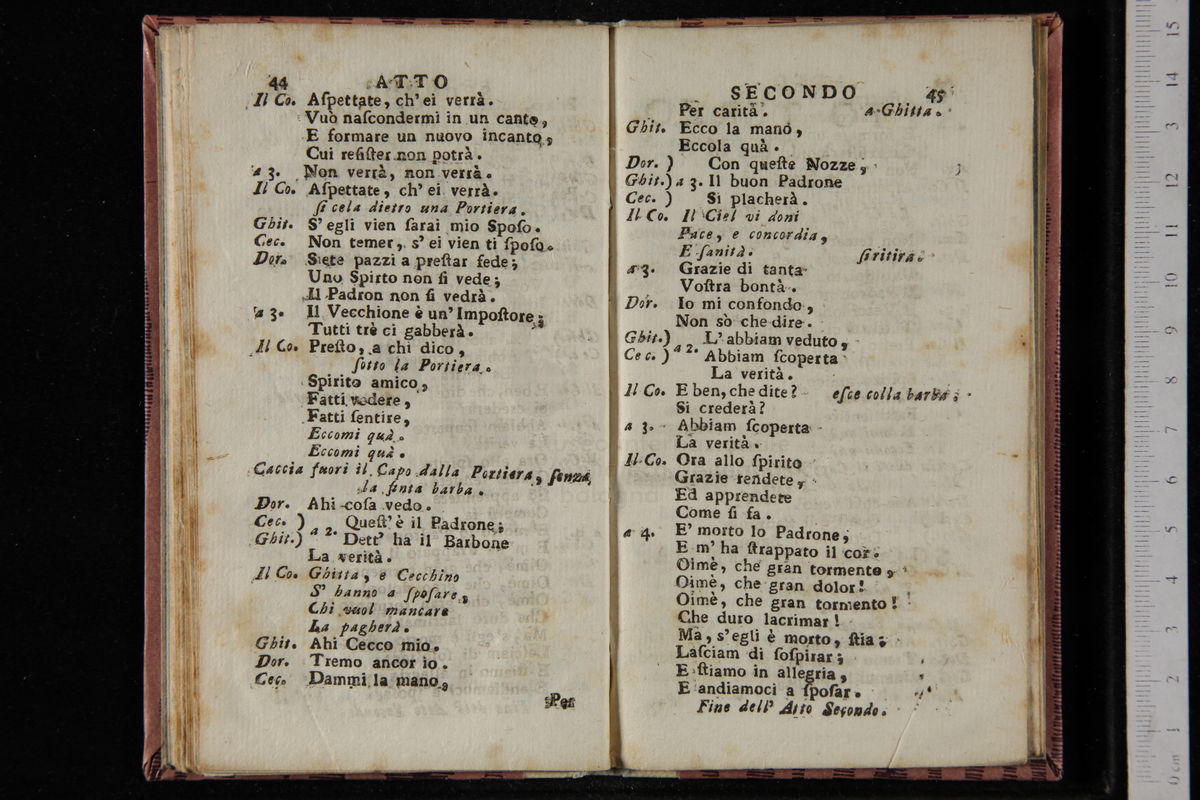 44 ATTO
Il Co. Aſpettate, ch' ei verrà.
Vuò naſcondermi in un canto,
E formare un nuovo incanto,
Cui reſiſter non potrà.
a 3. Non verrà, non verrà.
Il Co. Aſpettate, ch' ei verrà.
ſi cela dietro una Portiera.
Ghit. S' egli vien ſarai mio Spoſo.
Cec. Non temer, s' ei vien ti ſpoſo.
Dor. Siete pazzi a preſtar fede;
Uno Spirto non ſi vede;
Il Padron non ſi vedrà.
a 3. Il Vecchione è un' Impoſtore;
Tutti trè ci gabberà.
Il Co. Preſto, a chi dico,
ſotto la Portiera.
Spirito amico,
Fatti vedere,
Fatti ſentire,
Eccomi quà.
Eccomi quà.
Caccia fuori il Capo dalla Portiera, ſenza
la finta barba.
Dor. Ahi coſa vedo.
Cec. ) a 2. Queſt' è il Padrone;
Ghit.) Dett' ha il Barbone
La verità.
Il Co. Ghitta, e Cecchino
S' hanno a ſpoſare,
Chi vuol mancare
La pagherà.
Ghit. Ahi Cecco mio.
Dor. Tremo ancor io.
Cec. Dammi la mano,
Per
SECONDO 45
Per carità. a Ghitta.
Ghit. Ecco la mano,
Eccola quà.
Dor. ) Con queſte Nozze,
Ghit.) a 3. Il buon Padrone
Cec. ) Si placherà.
Il Co. Il Ciel vi doni
Pace, e concordia,
E ſanità. ſi ritira.
a 3. Grazie di tanta
Voſtra bontà.
Dor. Io mi confondo,
Non sò che dire.
Ghit.) a 2. L' abbiam veduto,
Cec. ) Abbiam ſcoperta
La verità.
Il Co. E ben, che dite? eſce colla barba;
Si crederà?
a 3. Abbiam ſcoperta
La verità.
Il Co. Ora allo ſpirito
Grazie rendete,
Ed apprendete
Come ſi fa.
a 4. E' morto lo Padrone;
E m' ha ſtrappato il cor.
Oimè, che gran tormento,
Oimè, che gran dolor!
Oimè, che gran tormento!
Che duro lacrimar!
Ma, s' egli è morto, ſtia;
Laſciam di ſoſpirar;
E ſtiamo in allegria,
E andiamoci a ſpoſar.
Fine dell' Atto Secondo.
0 cm 1 2 3 4 5 6 7 8 9 10 11 12 13 14 15